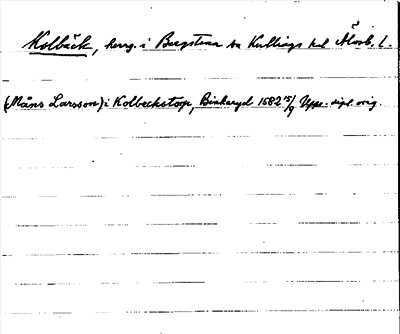 Kolbäck, herrg. i Bergstena sn Kullings hd Älvsb. l.
(Måns Larsson) i Kolbeckstorp, 1582 15/9 Upps. dipl. orig.